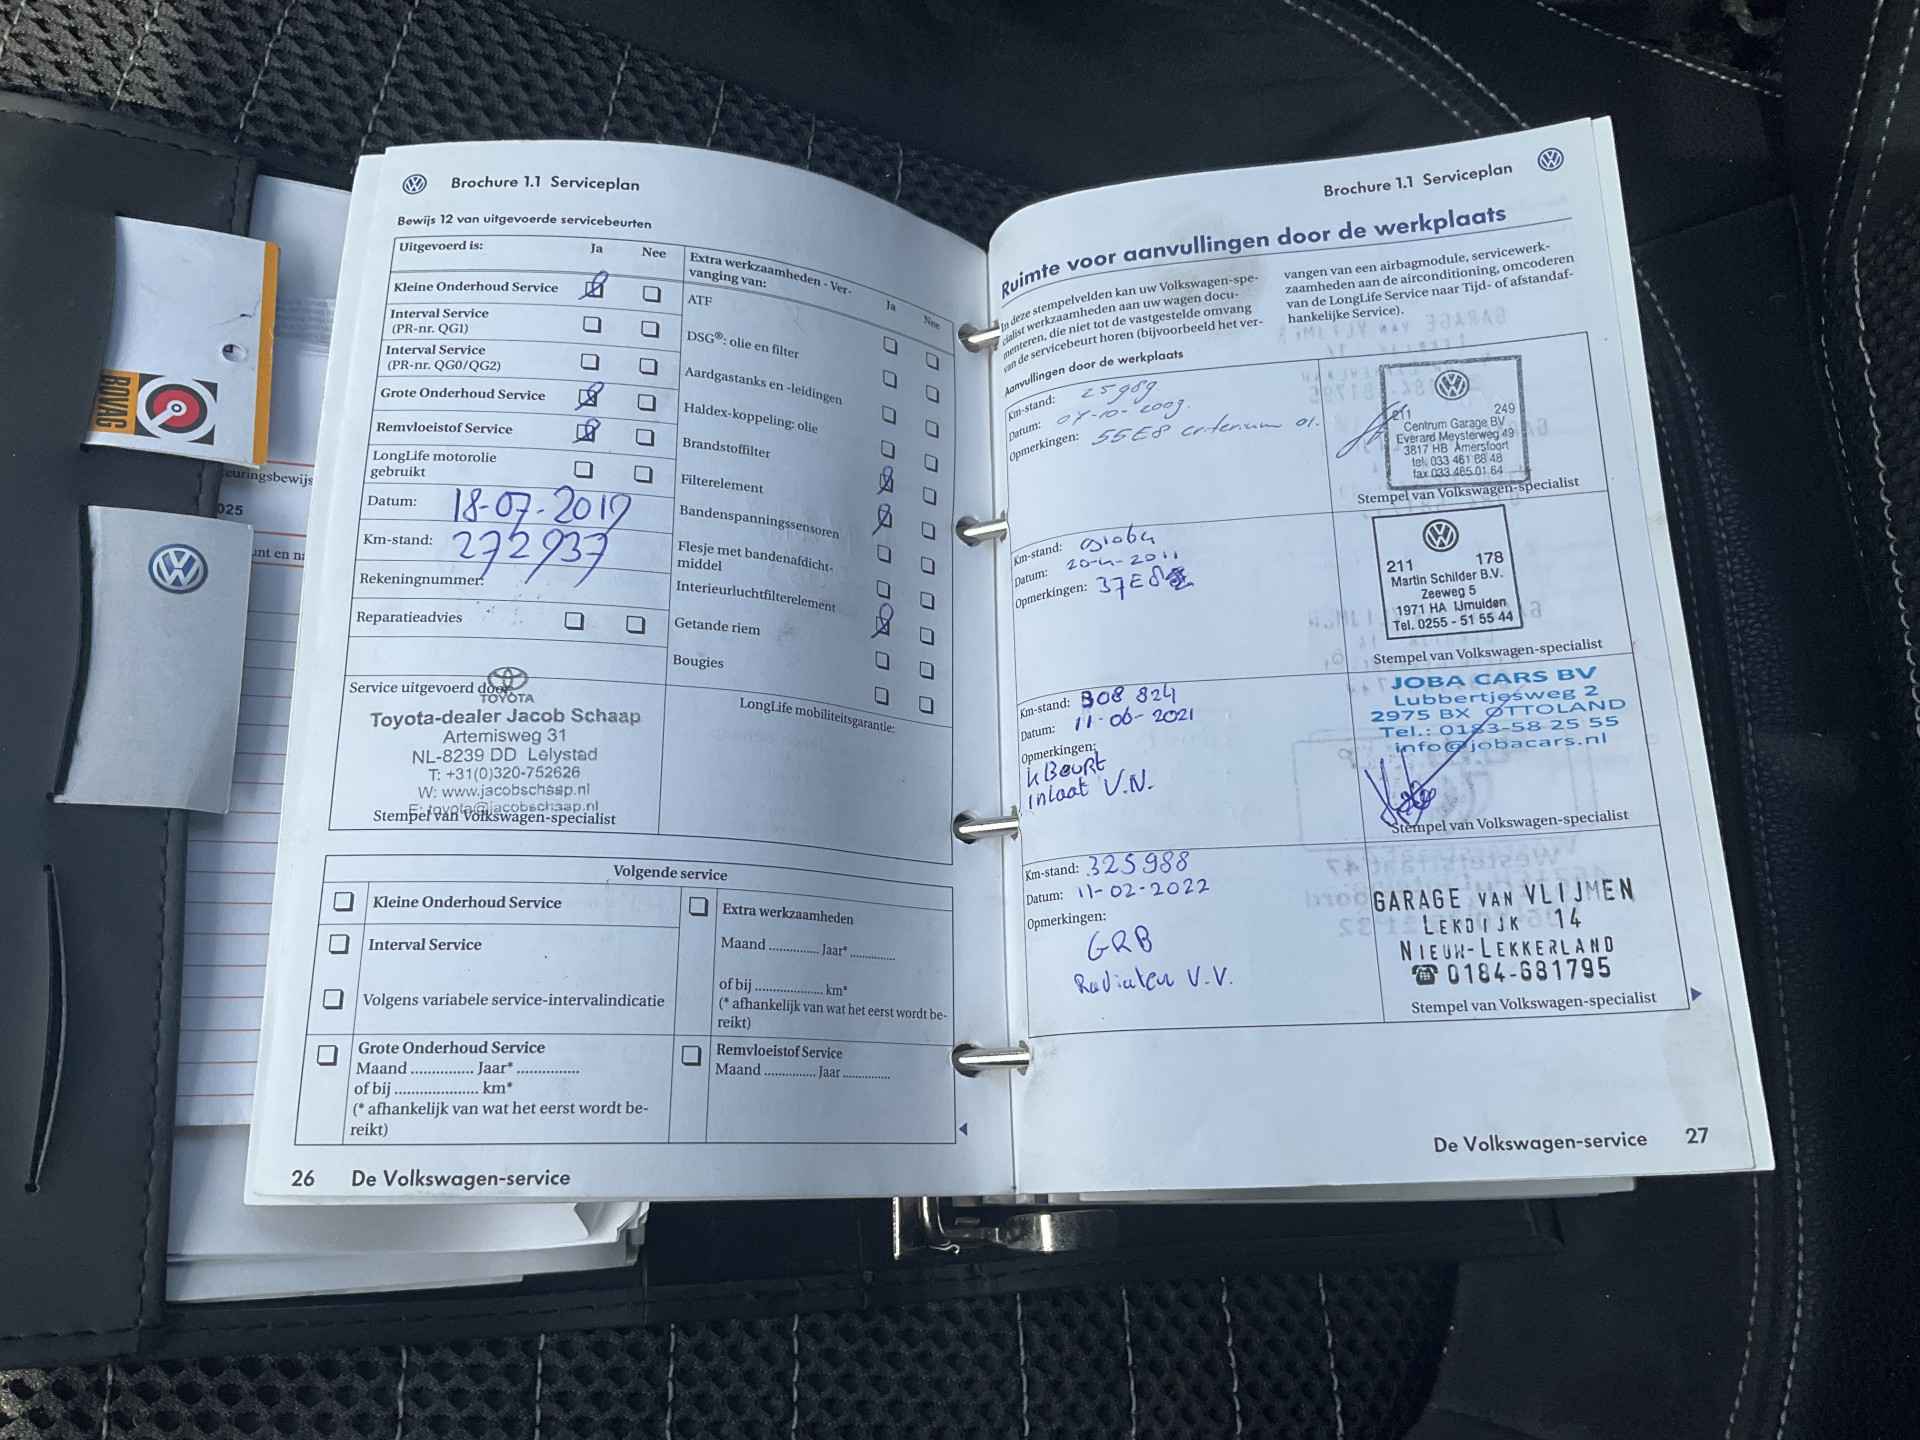 Brochure 1.1 Serviceplan
Bewijs 12 van uitgevoerde servicebeurten
Uitgevoerd is:
Ja
Nee
Kleine Onderhoud Service
Interval Service
(PR-nr. QG1)
Interval Service
(PR-nr. QG0/QG2)
Grote Onderhoud Service
Remvloeistof Service
LongLife motorolie
gebruikt
Datum: 18-07-2019
Km-stand: 272937
Rekeningnummer:
Reparatieadvies
Service uitgevoerd door
TOYOTA
Toyota-dealer Jacob Schaap
Artemisweg 31
NL-8239 DD Lelystad
T: +31(0)320-752626
W: www.jacobschaap.nl
E: toyota@jacobschaap.nl
Stempel van Volkswagen-specialist
Extra werkzaamheden - Ver-
vanging van:
Ja
Nee
ATF
DSG®: olie en filter
Aardgastanks en -leidingen
Haldex-koppeling: olie
Brandstoffilter
Filterelement
Bandenspanningssensoren
Flesje met bandenafdicht-
middel
Interieurluchtfilterelement
Getande riem
Bougies
LongLife mobiliteitsgarantie:
Volgende service
Kleine Onderhoud Service
Interval Service
Volgens variabele service-intervalindicatie
Grote Onderhoud Service
Maand ............... Jaar* ...............
of bij .................... km*
(* afhankelijk van wat het eerst wordt be-
reikt)
Extra werkzaamheden
Maand ............ Jaar* ...........
of bij .................. km*
(* afhankelijk van wat het eerst wordt be-
reikt)
Remvloeistof Service
Maand ............ Jaar ............
26 De Volkswagen-service
Brochure 1.1 Serviceplan
Ruimte voor aanvullingen door de werkplaats
In deze stempelvelden kan uw Volkswagen-spe-
cialist werkzaamheden aan uw wagen docu-
menteren, die niet tot de vastgestelde omvang
van de servicebeurt horen (bijvoorbeeld het ver-
vangen van een airbagmodule, servicewerk-
zaamheden aan de airconditioning, omcoderen
van de LongLife Service naar Tijd- of afstandaf-
hankelijke Service).
Aanvullingen door de werkplaats
Km-stand: 25989
Datum: 07-10-2009.
Opmerkingen: 55E8 criterium 01.
211 249
Centrum Garage BV
Everard Meysterweg 49
3817 HB Amersfoort
tel. 033 461 68 48
fax 033 465 01 64
Stempel van Volkswagen-specialist
Km-stand:
Datum: 20-4-2011
Opmerkingen: 37E8
211 178
Martin Schilder B.V.
Zeeweg 5
1971 HA IJmuiden
Tel. 0255 - 51 55 44
Stempel van Volkswagen-specialist
Km-stand: 308 824
Datum: 11-06-2021
Opmerkingen:
k Beurt
inlaat V.N.
JOBA CARS BV
Lubbertjesweg 2
2975 BX OTTOLAND
Tel.: 0183-58 25 55
info@jobacars.nl
Stempel van Volkswagen-specialist
Km-stand: 325988
Datum: 11-02-2022
Opmerkingen:
GRB
Radiateur V.V.
GARAGE VAN VLIJMEN
LEKDIJK 14
NIEUW-LEKKERLAND
☎ 0184-681795
Stempel van Volkswagen-specialist
De Volkswagen-service 27
BOVAG
025